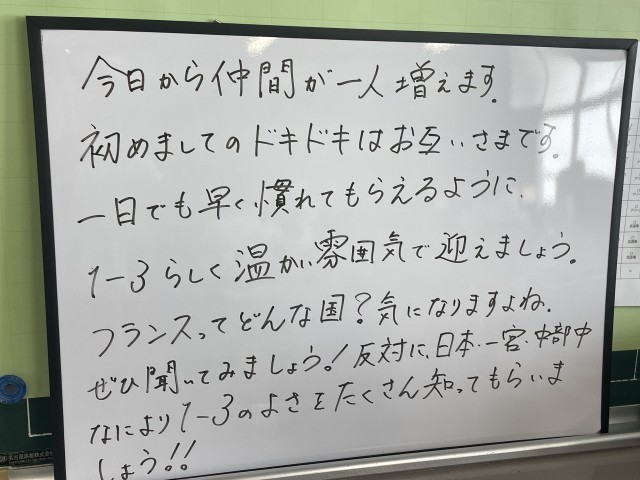 今日から仲間が一人増えます。
初めましてのドキドキはお互いさまです。
一日でも早く慣れてもらえるように、
1-3らしく温かい雰囲気で迎えましょう。
フランスってどんな国？気になりますよね。
ぜひ聞いてみましょう！反対に、日本・一宮・中部中
なにより1-3のよさをたくさん知ってもらいま
しょう!!